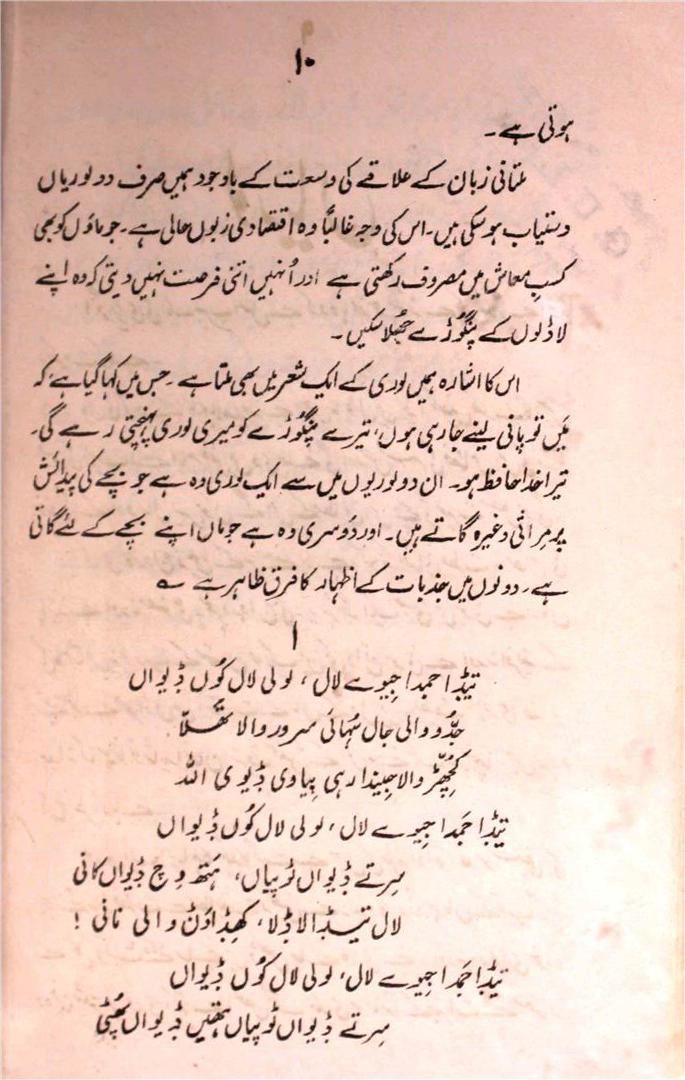 ۱۰
ہوتی ہے۔
ملتانی زبان کے علاقے کی وسعت کے باوجود ہمیں صرف دو لوریاں
دستیاب ہو سکی ہیں۔ اس کی وجہ غالباً وہ اقتصادی زبوں حالی ہے۔ جو ماؤں کو بھی
کسبِ معاش میں مصروف رکھتی ہے اور اُنہیں اتنی فرصت نہیں دیتی کہ وہ اپنے
لاڈلوں کے پنگوڑے جھلا سکیں۔
اس کا اشارہ ہمیں لوری کے ایک شعر میں بھی ملتا ہے۔ جس میں کہا گیا ہے، کہ
میَں تو پانی لینے جا رہی ہوں، تیرے پنگوڑے کو میری لوری پہنچتی رہے گی۔
تیرا خدا حافظ ہو۔ ان دو لوریوں میں سے ایک لوری وہ ہے جو بچے کی پیدائش
پر مراثی وغیرہ گاتے ہیں۔ اور دُوسری وہ ہے جو ماں اپنے بچے کے لئے گاتی
ہے۔ دونوں میں جذبات کے اظہار کا فرق ظاہر ہے ؎
۱
تیڈا جمدا جیوے لال، لولی لال کوُں ڈیواں
جڈو والی جال سُہائی سرور والا تھلاّ
کچھڑ والا جیندا رہی پیاوی ڈیوی اللہ
تیڈا جَمدا جیوے لال، لولی لال کوُں ڈیواں
سِرتے ڈیواں ٹوپیاں، ہَتھ وِچ ڈیواں کانی
لال تیڈا لاڈلا، کھِڈاوَن والی نانی !
تیڈا جَمدا جیوے لال، لولی لال کوُں ڈیواں
سِرتے ڈیواں ٹوپیاں ہتھیں ڈیواں